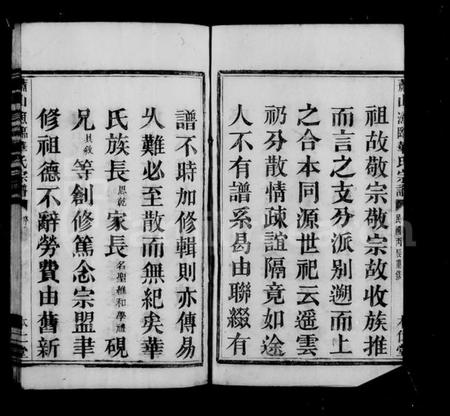 蕭山漁臨華氏宗譜
民國丙辰重修
祖故敬宗敬宗故收族推
而言之支分派別遡而上
之合本同源世祀云遥雲
礽分散情疎誼隔竟如途
人不有譜系曷由聯綴有
譜不時加修輯則亦傳易
乆難必至散而無紀矣華
氏族長恩乾家長名聖維和學禮硯
兄其敘等創修篤念宗盟聿
修祖德不辭勞費由舊新